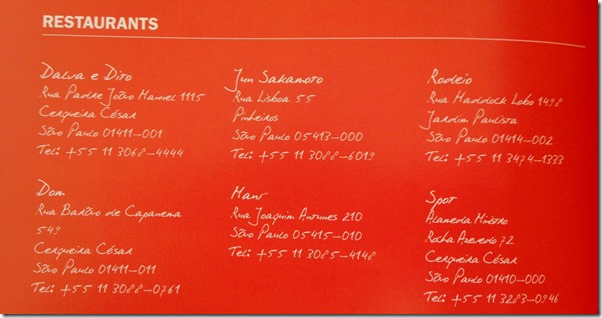 RESTAURANTS
Dalva e Dito
Rua Padre João Manuel 1115
Cerqueira César
São Paulo 01411–001
Tel: +55 11 3068–4444
Jun Sakamoto
Rua Lisboa 55
Pinheiros
São Paulo 05413–000
Tel: +55 11 3088–6019
Rodeio
Rua Haddock Lobo 1498
Jardim Paulista
São Paulo 01414–002
Tel: +55 11 3474–1333
Dom
Rua Barão de Capanema
549
Cerqueira César
São Paulo 01411–011
Tel: +55 11 3088–0761
Maní
Rua Joaquim Antunes 210
São Paulo 05415–010
Tel: +55 11 3085–4148
Spot
Alameda Ministro
Rocha Azevedo 72
Cerqueira César
São Paulo 01410–000
Tel: +55 11 3283–0946